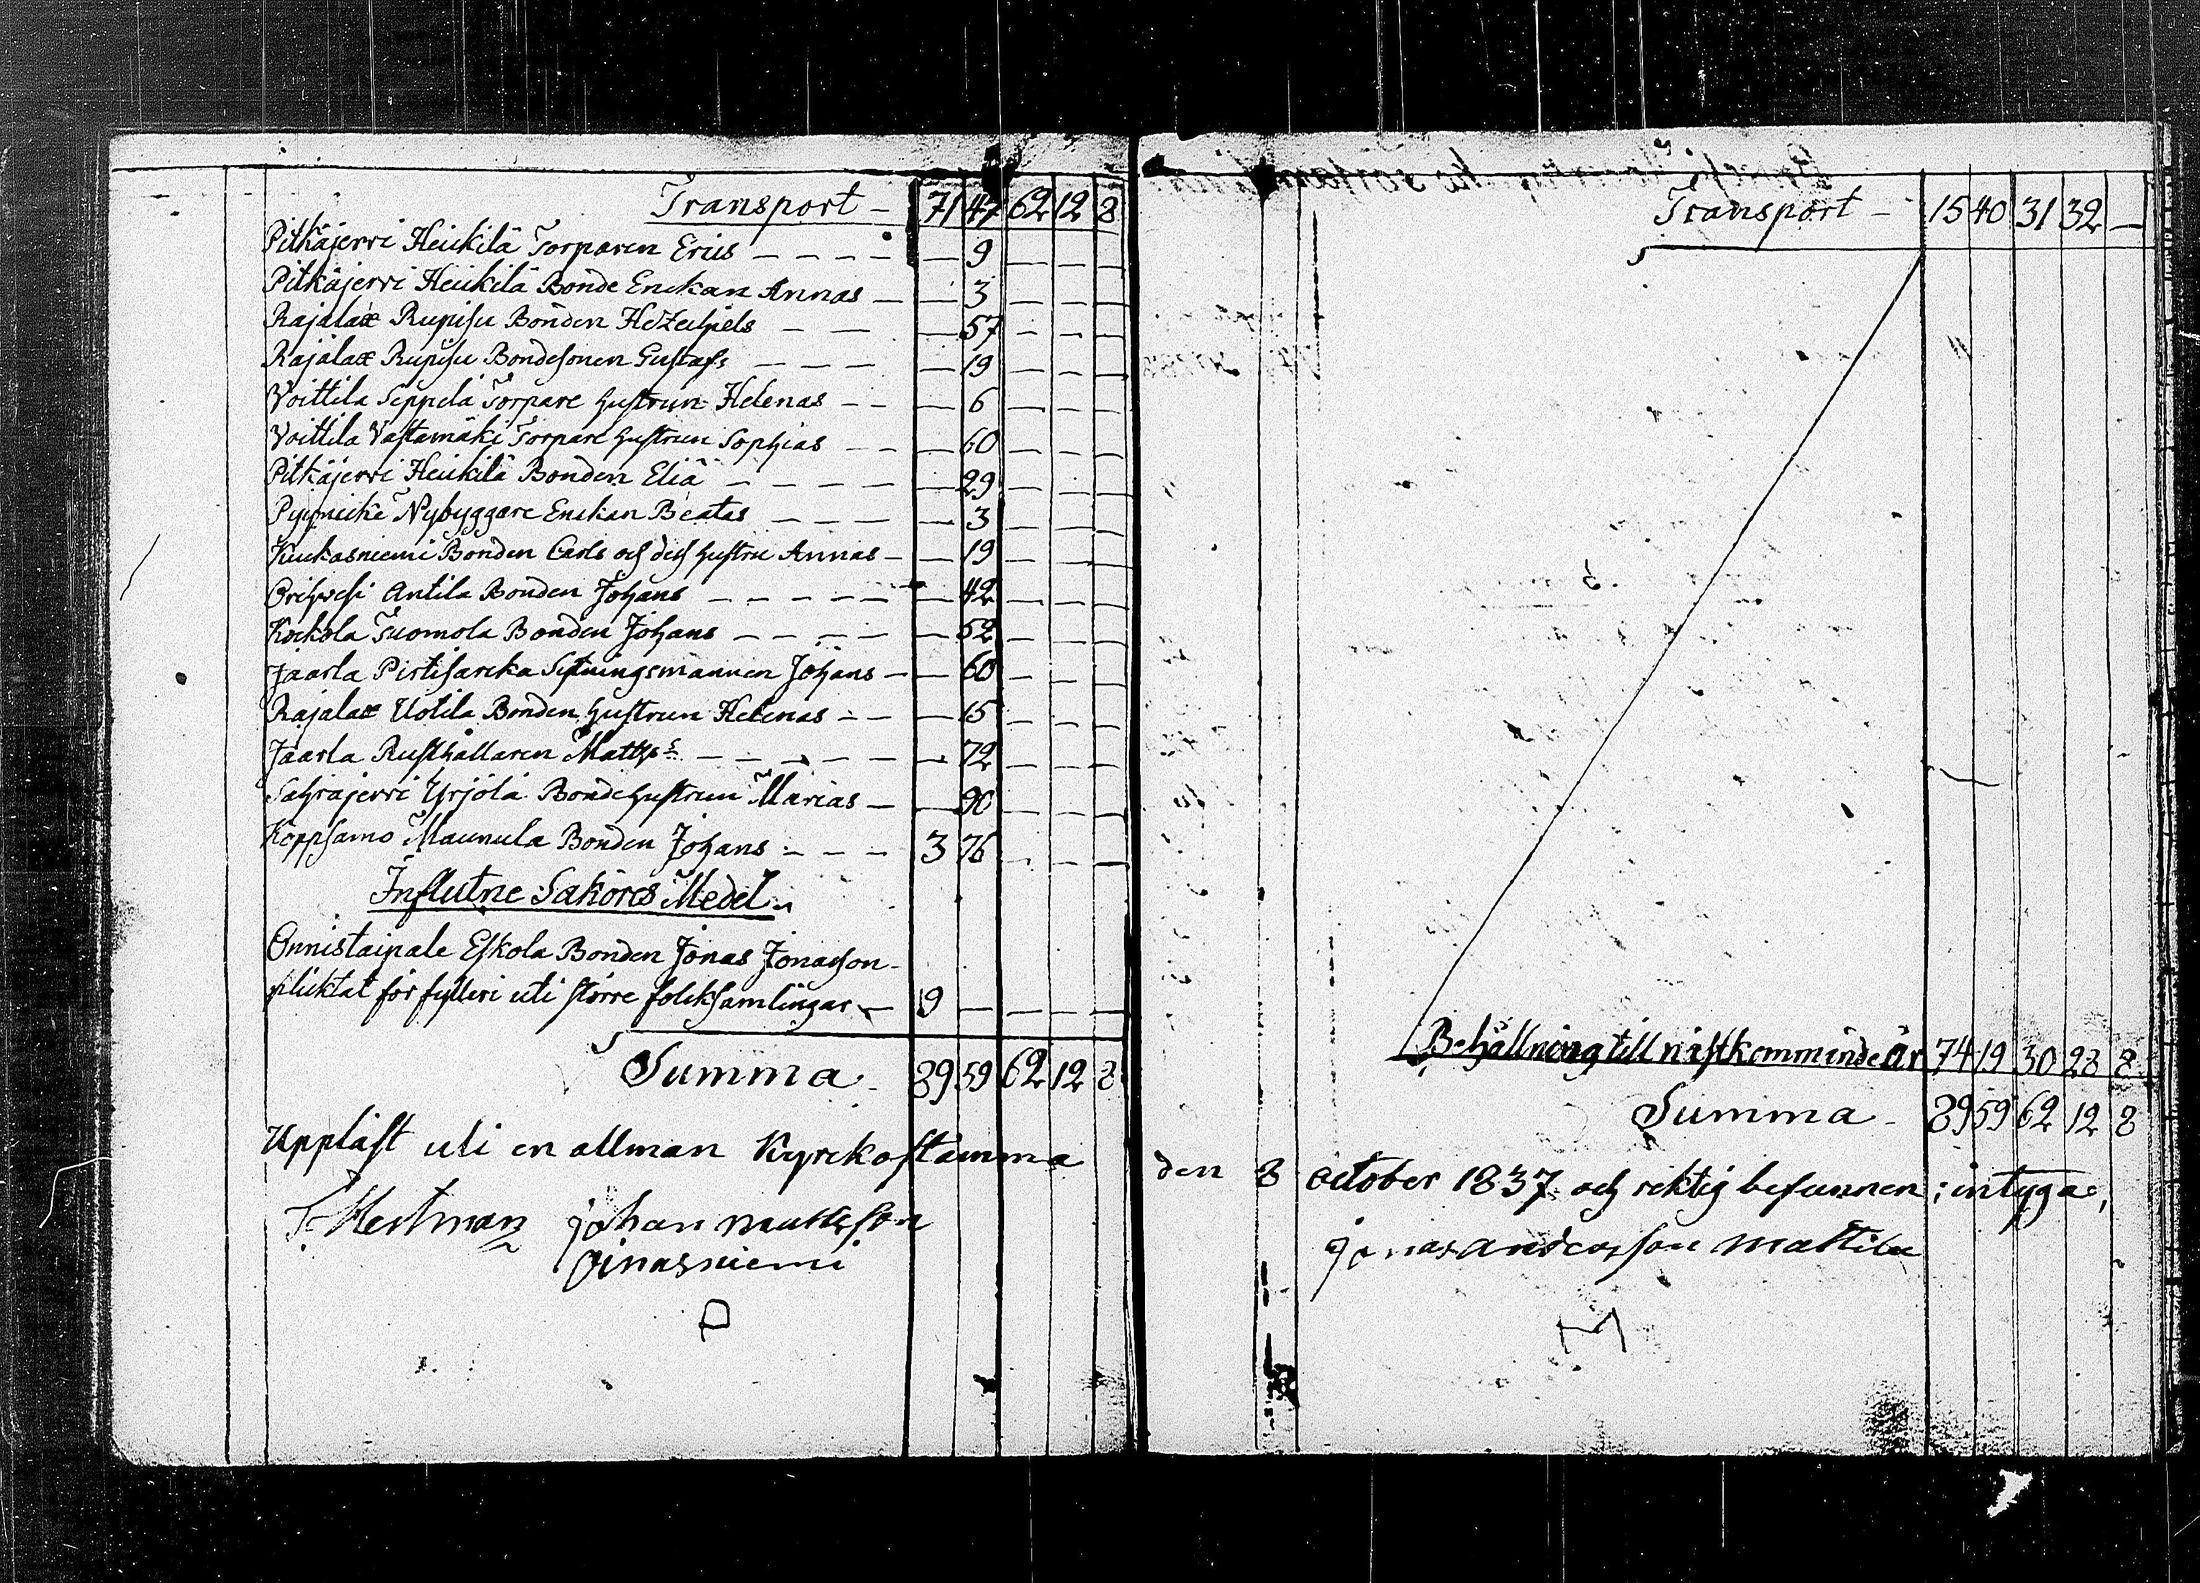 Transport – 71 47 62 12 8
Pitkäjervi Heickilä Torparen Erics – – – – — 9 — — —
Pitkäjervi Heickilä Bonde Enckan Annas – — 3 — — —
Rajalax Rupisu Bonden Hezechiels – — — 57 – — —
Rajalax Rupisu Bondesonen Gustafs – – — — 19 — — —
Voittila Seppelä Torpare hustrun Helenas – – — 6 — — —
Voittila Vastamäki Torpare hustrun Sophias – – — 60 — — —
Pitkäjerri Heickilä Bonden Eliä – – – – — 29 — — —
Nybyggare Enckan Beatas – – – — 3 — — —
Kuckasniemi Bonden Carls och dess hustru Annas – — 19 — — —
Orihvesi Antila Bonden Johans – – – – – — 42 — — —
Kockola Tuomola Bonden Johans – – – – — 52 — — —
Jaarla Pirtisarcka Johans – — 60 — — —
Rajalax Uotila Bonden hustrun Helenas – – — 15 – — —
Jaarla Rusthållaren Matths – – – – – – 72 — — —
Sahrajerri Yrjölä Bondehustrun Marias – — 90 — — —
Koppsamo Maunula Bonden Johans – – – 3 76 — — —
Influtne Saköres Medel.
Onnistaipale Eskola Bonden Jonas Jonasson
pliktat för fylleri uti större folksamlingar – 9 — — — —
Summa – 89 59 62 12 8
Uppläst uti en allman Kyrckostamma
Johan Mattsson
Oinasniemi
Transport – 15 40 31 32 —
Behållning till nästkommande år 74 19 30 28 8
Summa – 89 59 62 12 8
den 8 october 1837 och riktig befunnen; intygas,
Jonas Andersson Mattila